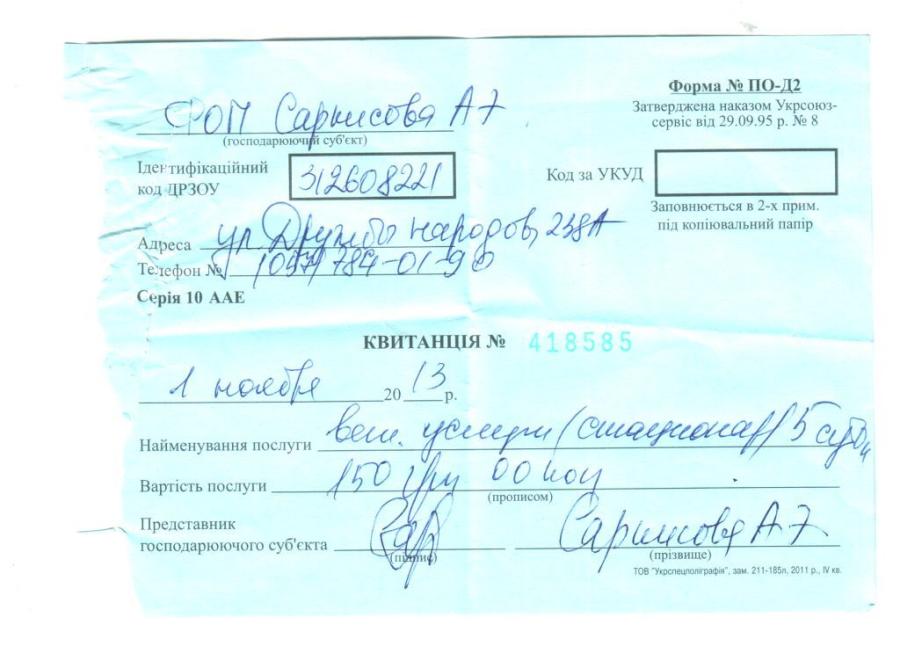 Форма № ПО-Д2
Затверджена наказом Укрсоюз-
сервіс від 29.09.95 р. № 8
ФОП Саркисова А
(господарюючий суб'єкт)
Ідентифікаційний
код ДРЗОУ 312608221
Код за УКУД
Заповнюється в 2-х прим.
під копіювальний папір
Адреса ул. Дружбы народов, 238А
Телефон № (097) 784-01-90
Серія 10 ААЕ
КВИТАНЦІЯ № 418585
1 ноября 2013 р.
Найменування послуги вет. услуги (стационар) 5 суток
Вартість послуги 150 грн 00 коп
(прописом)
Представник
господарюючого суб'єкта Саркисова А
(підпис) (прізвище)
ТОВ "Укрспецполіграфія", зам. 211-185п, 2011 р., IV кв.